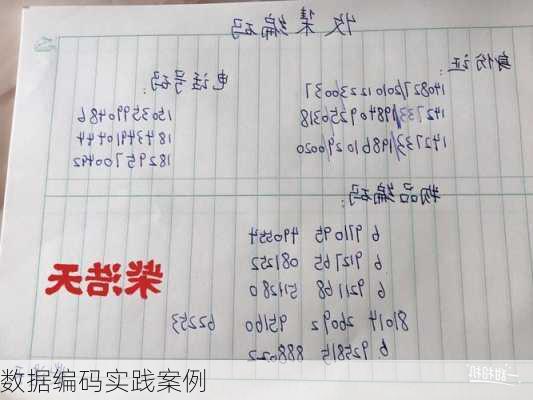 收集编码
身份证:
140827201012230037
142733198409250318
142733198610290020
电话号码:
15035990486
18434910444
18295700442
物品编码:
6 971095 490554
6 912765 081252
6 921168 511280
81014 26092 95160 62253
6 925815 888022
柴浩天
一甜相机
数据编码实践案例